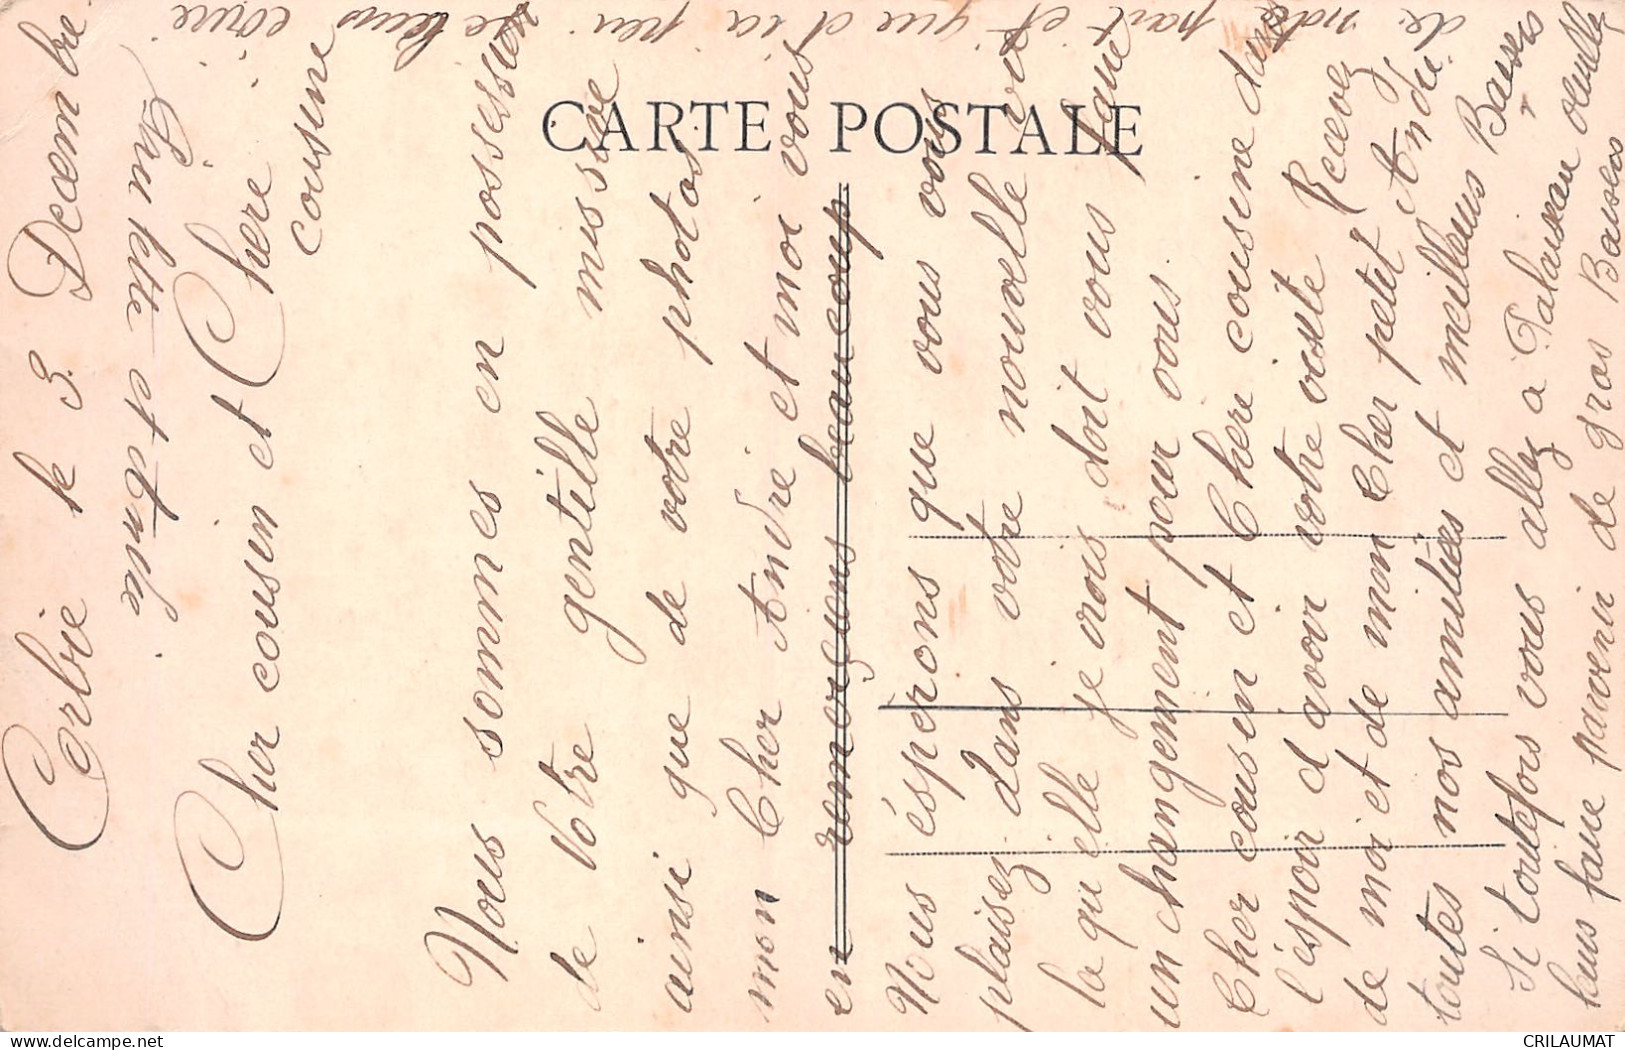 CARTE POSTALE
Corbie le 3 Decembre
et André
Cher cousin et Chere
cousine
Nous sommes en possession
de Votre gentille missive
ainsi que de votre photos
mon Cher André et moi vous
en remerçions beaucoup
Nous éspérons que vous vous
plaisez dans votre nouvelle vie
la qu'elle je crois doit vous faire
un changement pour vous.
Cher cousin et Chere cousine dans
l'éspoir d'avoir votre visite Recevez
de moi et de mon Cher petit André
toutes nos amitiées et meilleurs Baisers
Si toutefois vous allez a Palaiseau veuillez
leurs faire parvenir de gros Baisers
de notre part et que d'ici peu je leurs écrirai
CRILAUMAT